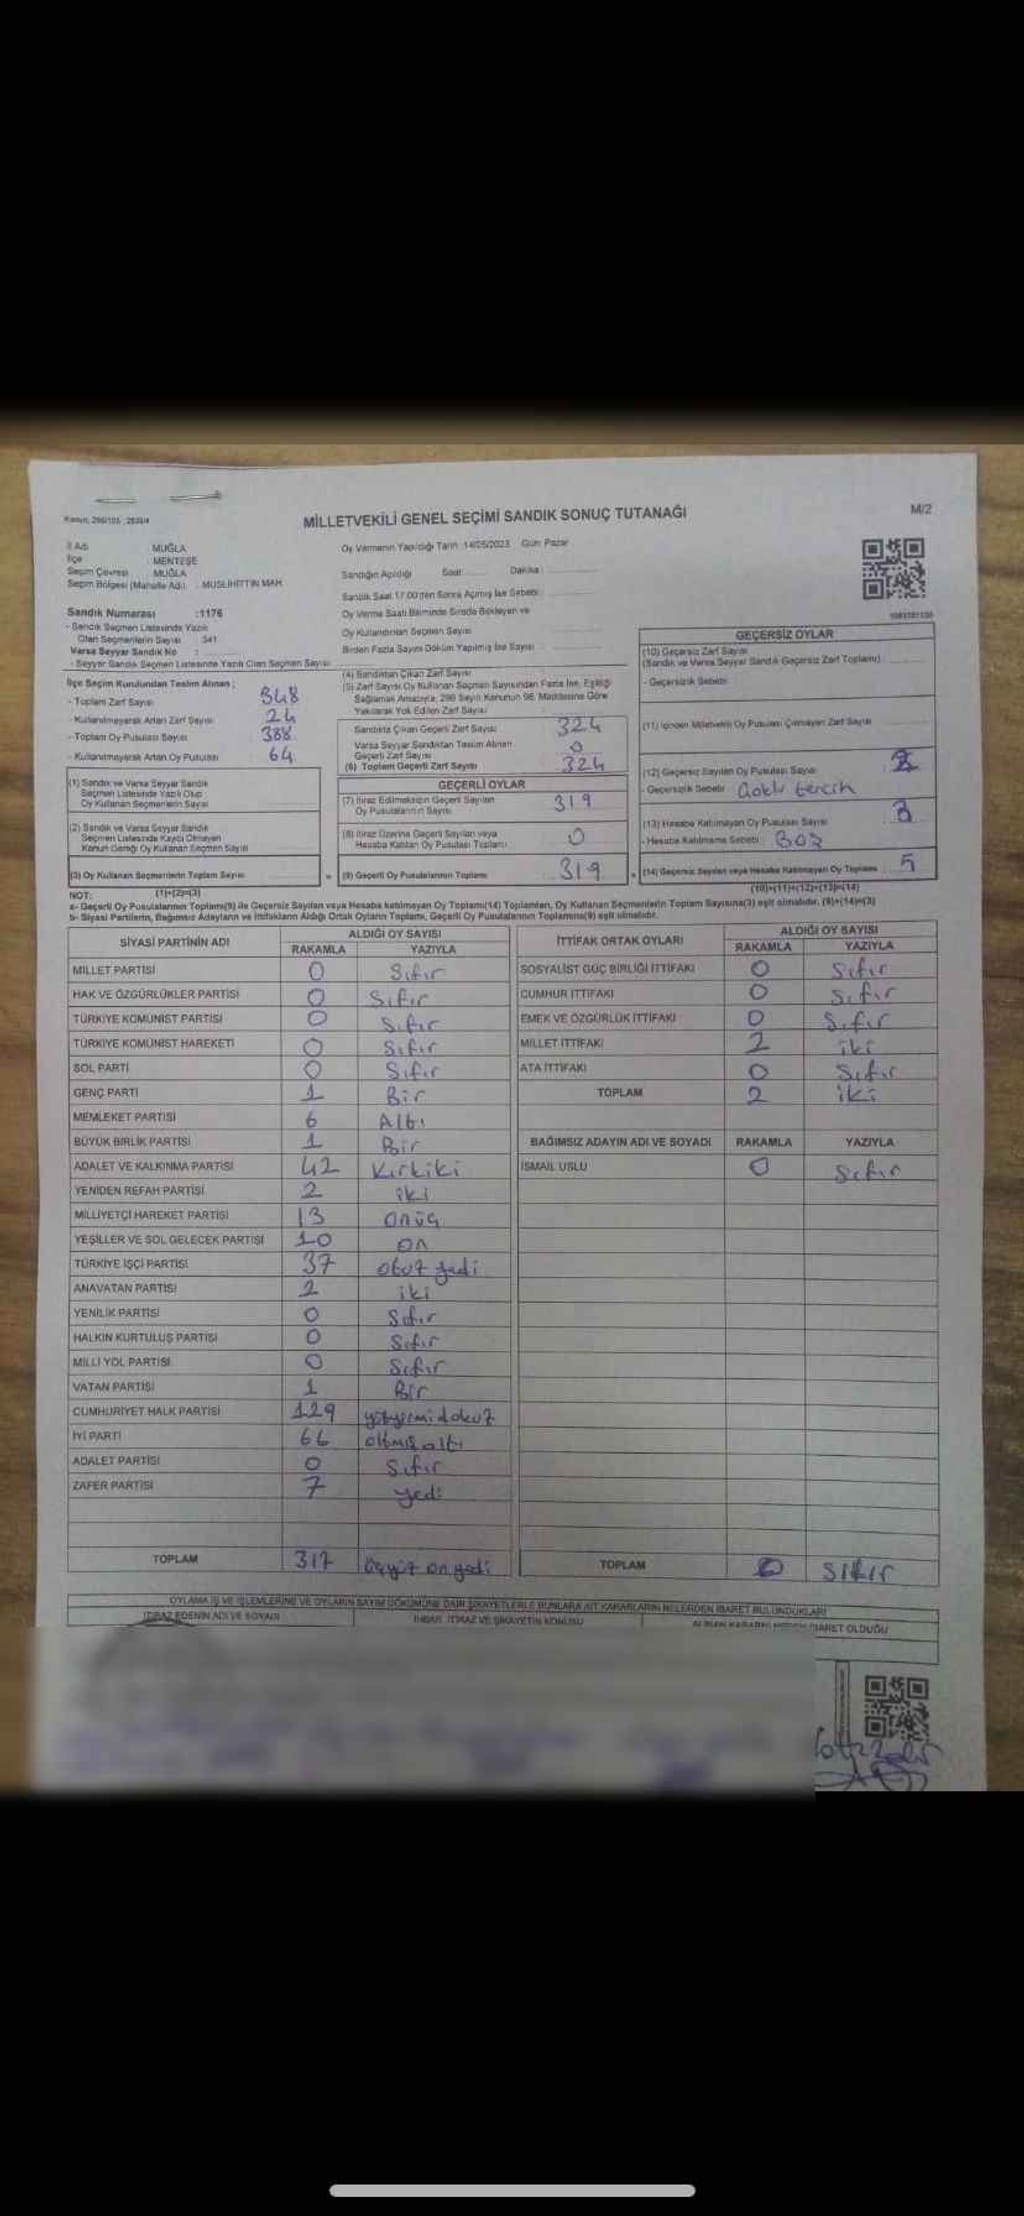 Kanun, 298/105 ; 2839/4
MİLLETVEKİLİ GENEL SEÇİMİ SANDIK SONUÇ TUTANAĞI
M/2
İl Adı MUĞLA
İlçe MENTEŞE
Seçim Çevresi MUĞLA
Seçim Bölgesi (Mahalle Adı) : MUSLİHİTTİN MAH.
Oy Vermenin Yapıldığı Tarih :14/05/2023 Gün: Pazar
Sandığın Açıldığı Saat: Dakika:
Sandık Saat 17.00'den Sonra Açılmış İse Sebebi:
Sandık Numarası :1176
- Sandık Seçmen Listesinde Yazılı
Olan Seçmenlerin Sayısı 341
Varsa Seyyar Sandık No :
- Seyyar Sandık Seçmen Listesinde Yazılı Olan Seçmen Sayısı
Oy Verme Saati Bitiminde Sırada Bekleyen ve
Oy Kullandırılan Seçmen Sayısı
Birden Fazla Sayım Döküm Yapılmış İse Sayısı
İlçe Seçim Kurulundan Teslim Alınan ;
- Toplam Zarf Sayısı 348
- Kullanılmayarak Artan Zarf Sayısı 24
- Toplam Oy Pusulası Sayısı 388
- Kullanılmayarak Artan Oy Pusulası 64
(1) Sandık ve Varsa Seyyar Sandık
Seçmen Listesinde Yazılı Olup
Oy Kullanan Seçmenlerin Sayısı
(2) Sandık ve Varsa Seyyar Sandık
Seçmen Listesinde Kaydı Olmayan
Kanun Gereği Oy Kullanan Seçmen Sayısı
(3) Oy Kullanan Seçmenlerin Toplam Sayısı
(1)+(2)=(3)
(4) Sandıktan Çıkan Zarf Sayısı
(5) Zarf Sayısı Oy Kullanan Seçmen Sayısından Fazla İse, Eşitliği
Sağlamak Amacıyla, 298 Sayılı Kanunun 98. Maddesine Göre
Yakılarak Yok Edilen Zarf Sayısı
Sandıkta Çıkan Geçerli Zarf Sayısı 324
Varsa Seyyar Sandıktan Teslim Alınan
Geçerli Zarf Sayısı 0
(6) Toplam Geçerli Zarf Sayısı 324
GEÇERLİ OYLAR
(7) İtiraz Edilmeksizin Geçerli Sayılan
Oy Pusulalarının Sayısı 319
(8) İtiraz Üzerine Geçerli Sayılan veya
Hesaba Katılan Oy Pusulası Toplamı 0
(9) Geçerli Oy Pusulalarının Toplamı 319
GEÇERSİZ OYLAR
(10) Geçersiz Zarf Sayısı
(Sandık ve Varsa Seyyar Sandık Geçersiz Zarf Toplamı)
- Geçersizlik Sebebi
(11) İçinden Milletvekili Oy Pusulası Çıkmayan Zarf Sayısı
(12) Geçersiz Sayılan Oy Pusulası Sayısı 2
- Geçersizlik Sebebi Çoklu tercih
(13) Hesaba Katılmayan Oy Pusulası Sayısı 3
- Hesaba Katılmama Sebebi : Boş
(14) Geçersiz Sayılan veya Hesaba Katılmayan Oy Toplamı 5
(10)+(11)+(12)+(13)=(14)
NOT:
a- Geçerli Oy Pusulalarının Toplamı(9) ile Geçersiz Sayılan veya Hesaba katılmayan Oy Toplamı(14) Toplamları, Oy Kullanan Seçmenlerin Toplam Sayısına(3) eşit olmalıdır. (9)+(14)=(3)
b- Siyasi Partilerin, Bağımsız Adayların ve İttifakların Aldığı Ortak Oyların Toplamı, Geçerli Oy Pusulalarının Toplamına(9) eşit olmalıdır.
SİYASİ PARTİNİN ADI ALDIĞI OY SAYISI
RAKAMLA YAZIYLA
MİLLET PARTİSİ 0 Sıfır
HAK VE ÖZGÜRLÜKLER PARTİSİ 0 Sıfır
TÜRKİYE KOMÜNİST PARTİSİ 0 Sıfır
TÜRKİYE KOMÜNİST HAREKETİ 0 Sıfır
SOL PARTİ 0 Sıfır
GENÇ PARTİ 1 Bir
MEMLEKET PARTİSİ 6 Altı
BÜYÜK BİRLİK PARTİSİ 1 Bir
ADALET VE KALKINMA PARTİSİ 42 Kırkiki
YENİDEN REFAH PARTİSİ 2 iki
MİLLİYETÇİ HAREKET PARTİSİ 13 onüç
YEŞİLLER VE SOL GELECEK PARTİSİ 10 on
TÜRKİYE İŞÇİ PARTİSİ 37 otuz yedi
ANAVATAN PARTİSİ 2 iki
YENİLİK PARTİSİ 0 Sıfır
HALKIN KURTULUŞ PARTİSİ 0 Sıfır
MİLLİ YOL PARTİSİ 0 Sıfır
VATAN PARTİSİ 1 Bir
CUMHURİYET HALK PARTİSİ 129 yüzyirmidokuz
İYİ PARTİ 66 altmış altı
ADALET PARTİSİ 0 Sıfır
ZAFER PARTİSİ 7 yedi
TOPLAM 317 üçyüz onyedi
İTTİFAK ORTAK OYLARI ALDIĞI OY SAYISI
RAKAMLA YAZIYLA
SOSYALİST GÜÇ BİRLİĞİ İTTİFAKI 0 Sıfır
CUMHUR İTTİFAKI 0 Sıfır
EMEK VE ÖZGÜRLÜK İTTİFAKI 0 Sıfır
MİLLET İTTİFAKI 2 iki
ATA İTTİFAKI 0 Sıfır
TOPLAM 2 iki
BAĞIMSIZ ADAYIN ADI VE SOYADI RAKAMLA YAZIYLA
İSMAİL USLU 0 Sıfır
TOPLAM 0 sıfır
OYLAMA İŞ VE İŞLEMLERİNE VE OYLARIN SAYIM DÖKÜMÜNE DAİR ŞİKAYETLERLE BUNLARA AİT KARARLARIN NELERDEN İBARET BULUNDUKLARI
İTİRAZ EDENİN ADI VE SOYADI
İHBAR, İTİRAZ VE ŞİKAYETİN KONUSU
ALINAN KARARIN NEDEN İBARET OLDUĞU